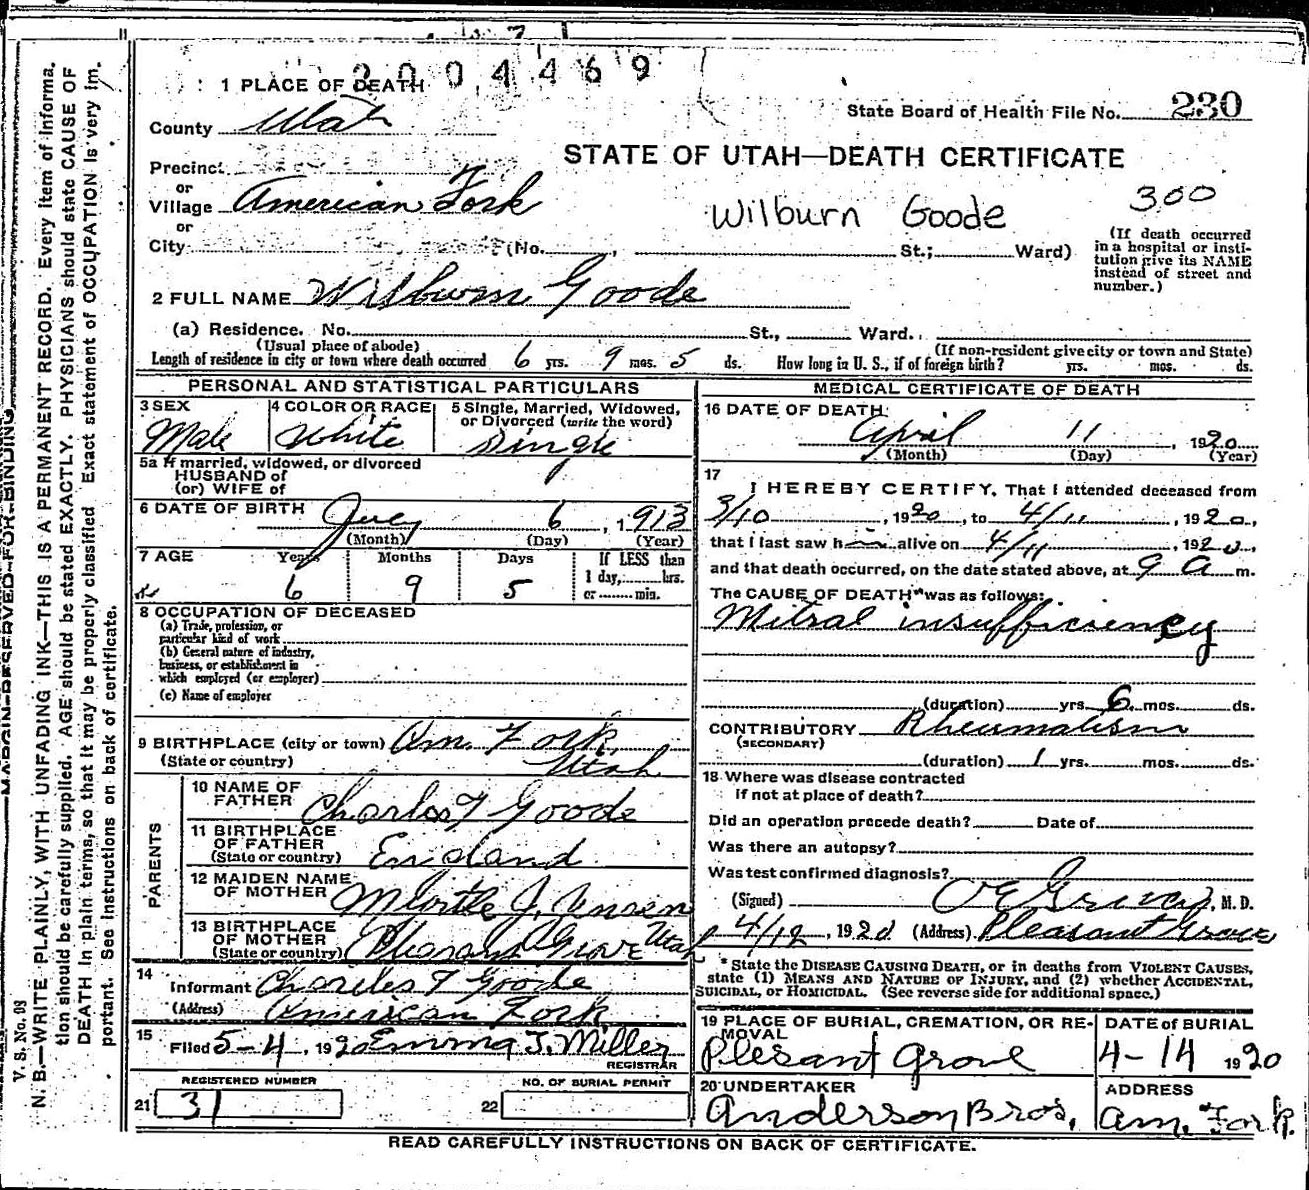 2004469
1 PLACE OF DEATH
State Board of Health File No. 230
County Utah
STATE OF UTAH—DEATH CERTIFICATE
Precinct
or
Village American Fork
or
City (No. , St.; Ward)
Wilburn Goode
300
(If death occurred
in a hospital or insti-
tution give its NAME
instead of street and
number.)
2 FULL NAME Wilburn Goode
(a) Residence. No. St., Ward.
(Usual place of abode) (If non-resident give city or town and State)
Length of residence in city or town where death occurred 6 yrs. 9 mos. 5 ds. How long in U. S., if of foreign birth? yrs. mos. ds.
PERSONAL AND STATISTICAL PARTICULARS
3 SEX
Male
4 COLOR OR RACE
White
5 Single, Married, Widowed,
or Divorced (write the word)
Single
5a If married, widowed, or divorced
HUSBAND of
(or) WIFE of
6 DATE OF BIRTH July 6, 1913
(Month) (Day) (Year)
7 AGE Years Months Days If LESS than
1 day, hrs.
or min.
6 9 5
8 OCCUPATION OF DECEASED
(a) Trade, profession, or
particular kind of work
(b) General nature of industry,
business, or establishment in
which employed (or employer)
(c) Name of employer
9 BIRTHPLACE (city or town) Am. Fork
(State or country) Utah
PARENTS
10 NAME OF
FATHER Charles F Goode
11 BIRTHPLACE
OF FATHER
(State or country) England
12 MAIDEN NAME
OF MOTHER Myrtle J.
13 BIRTHPLACE
OF MOTHER
(State or country) Pleasant Grove Utah
14
Informant Charles F Goode
(Address) American Fork
15
Filed 5-4, 1920 Emma J. Miller
REGISTRAR
REGISTERED NUMBER
21 31
NO. OF BURIAL PERMIT
22
MEDICAL CERTIFICATE OF DEATH
16 DATE OF DEATH
April 11, 1920
(Month) (Day) (Year)
17
I HEREBY CERTIFY, That I attended deceased from
3/10, 1920, to 4/11, 1920,
that I last saw him alive on 4/11, 1920,
and that death occurred, on the date stated above, at 9 a m.
The CAUSE OF DEATH* was as follows:
Mitral insufficiency
(duration) yrs. 6 mos. ds.
CONTRIBUTORY Rheumatism
(SECONDARY)
(duration) 1 yrs. mos. ds.
18 Where was disease contracted
if not at place of death?
Did an operation precede death? Date of
Was there an autopsy?
Was test confirmed diagnosis?
(Signed) , M. D.
4/12, 1920 (Address) Pleasant Grove
* State the DISEASE CAUSING DEATH, or in deaths from VIOLENT CAUSES,
state (1) MEANS AND NATURE OF INJURY, and (2) whether ACCIDENTAL,
SUICIDAL, or HOMICIDAL. (See reverse side for additional space.)
19 PLACE OF BURIAL, CREMATION, OR RE-
MOVAL
Plesant Grove
DATE of BURIAL
4-14 1920
20 UNDERTAKER
Anderson Bros.
ADDRESS
Am. Fork.
READ CAREFULLY INSTRUCTIONS ON BACK OF CERTIFICATE.
V. S. No. 93
MARGIN RESERVED FOR BINDING
N. B.—WRITE PLAINLY, WITH UNFADING INK—THIS IS A PERMANENT RECORD. Every item of informa-
tion should be carefully supplied. AGE should be stated EXACTLY. PHYSICIANS should state CAUSE OF
DEATH in plain terms, so that it may be properly classified. Exact statement of OCCUPATION is very im-
portant. See instructions on back of certificate.